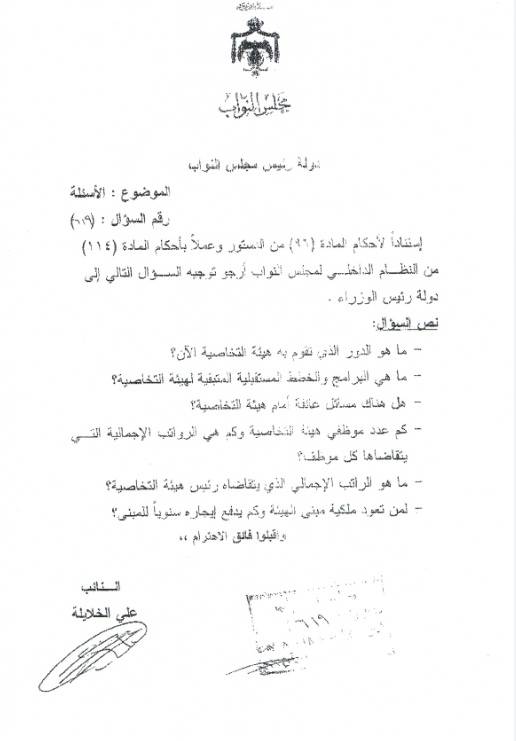 مجلس النواب
دولة رئيس مجلس النواب
الموضوع : الأسئلة
رقم السؤال : (٦١٩)
إستناداً لأحكام المادة (٩٦) من الدستور وعملاً بأحكام المادة (١١٤)
من النظام الداخلي لمجلس النواب أرجو توجيه السؤال التالي إلى
دولة رئيس الوزراء .
نص السؤال:
- ما هو الدور الذي تقوم به هيئة التخاصية الآن؟
- ما هي البرامج والخطط المستقبلية المتبقية لهيئة التخاصية؟
- هل هناك مسائل عالقة أمام هيئة التخاصية؟
- كم عدد موظفي هيئة التخاصية وكم هي الرواتب الإجمالية التي
يتقاضاها كل موظف؟
- ما هو الراتب الإجمالي الذي يتقاضاه رئيس هيئة التخاصية؟
- لمن تعود ملكية مبنى الهيئة وكم يدفع إيجاره سنوياً للمبنى؟
واقبلوا فائق الاحترام ،،
النائب
علي الخلايلة
٦١٩